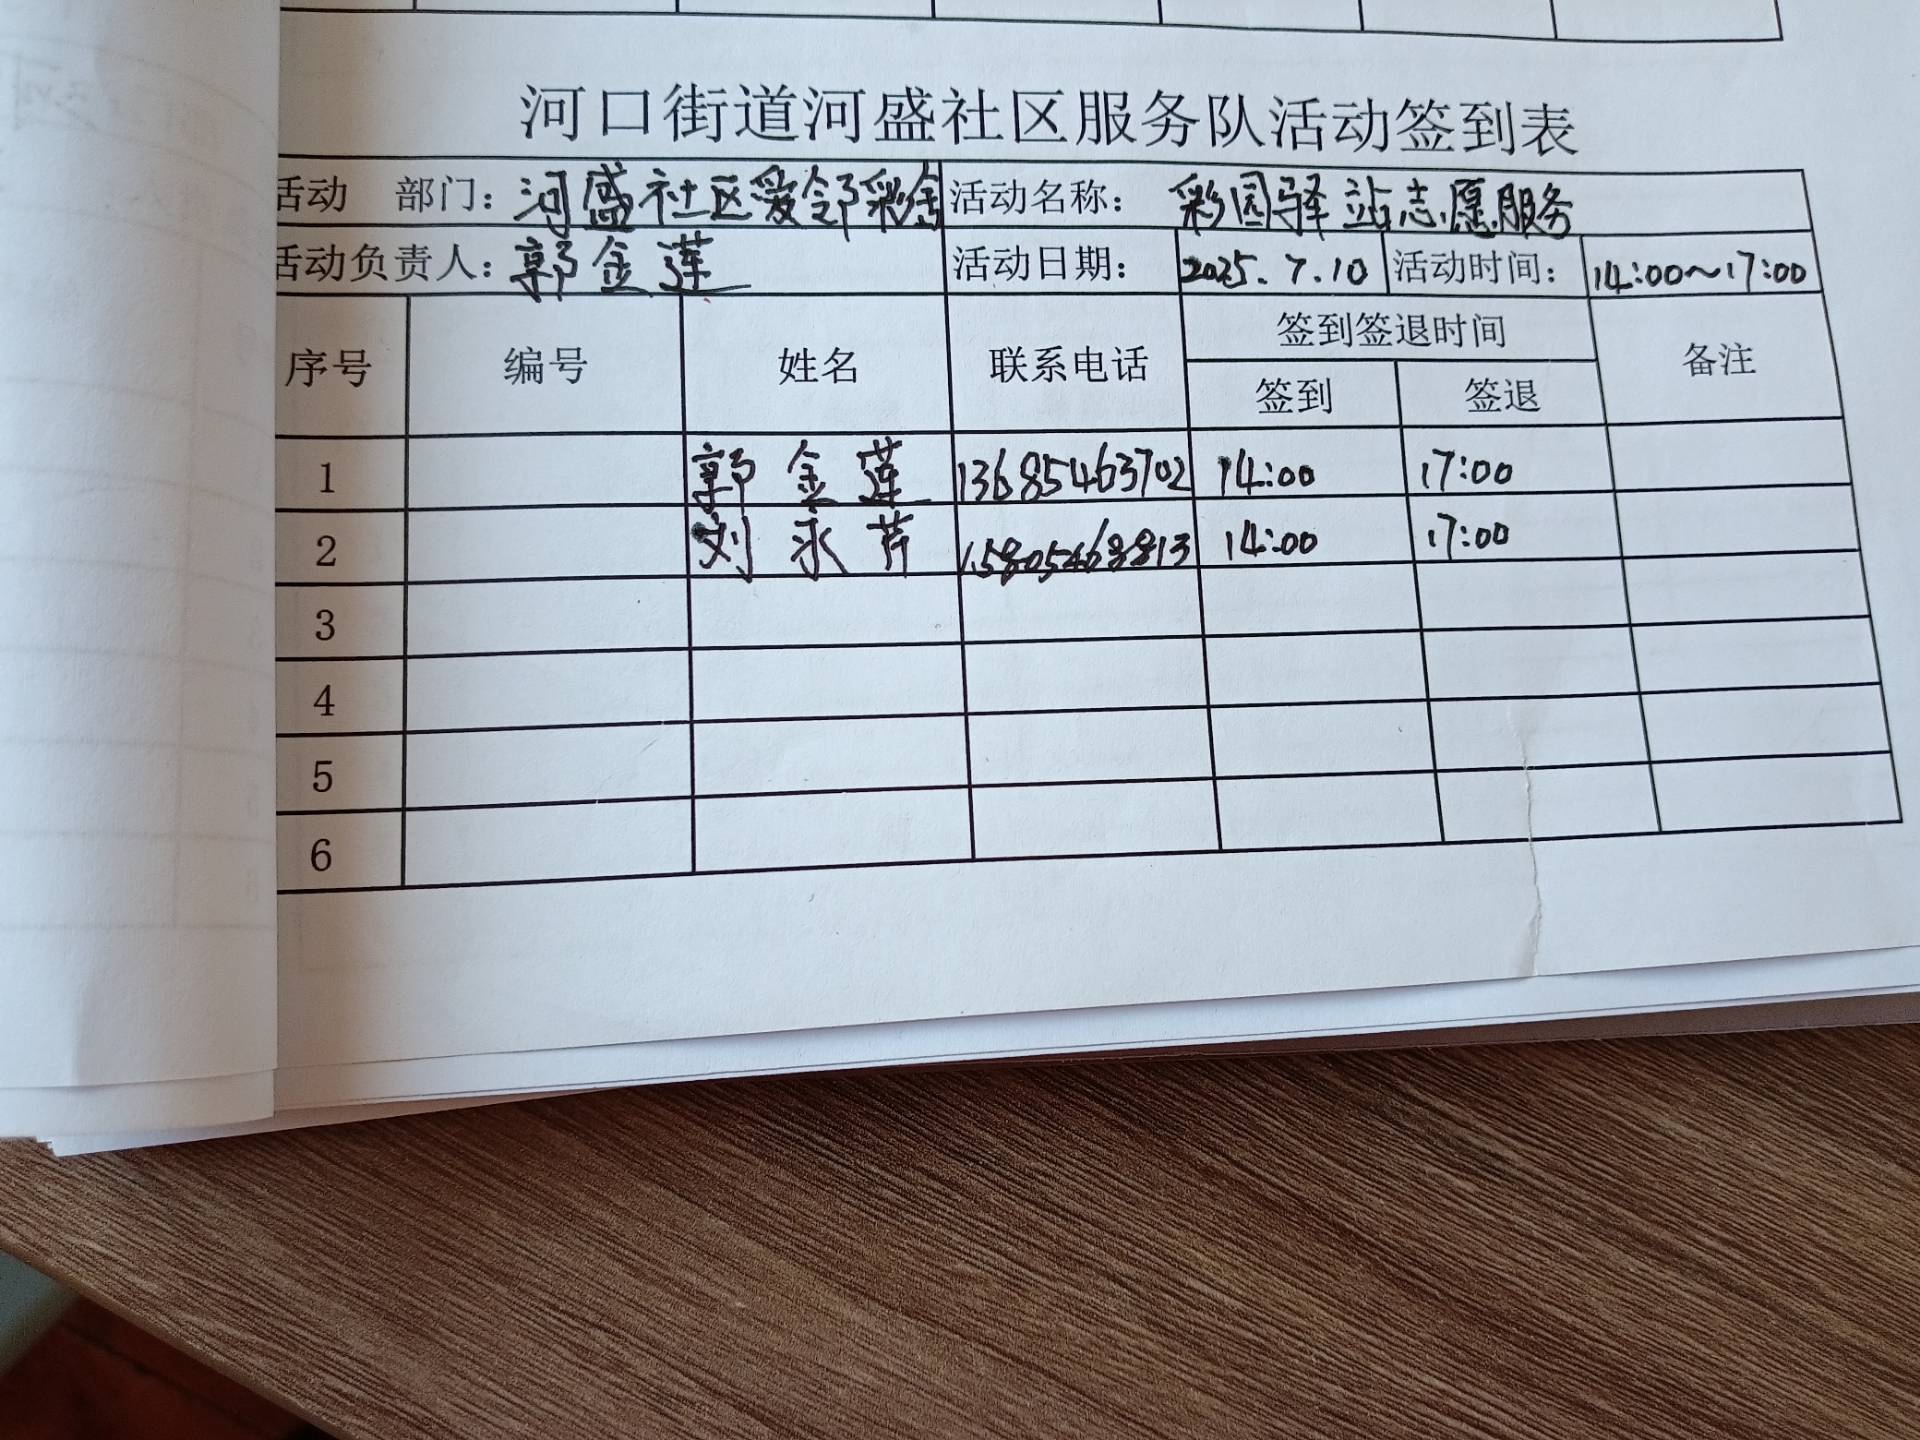 河口街道河盛社区服务队活动签到表
活动 部门：河盛社区爱邻彩 活动名称：彩园驿站志愿服务
活动负责人：郭金莲 活动日期：2025.7.10 活动时间：14:00~17:00
序号 编号 姓名 联系电话 签到签退时间 备注
签到 签退
1 郭金莲 13685463702 14:00 17:00
2 刘永芹 15805468813 14:00 17:00
3
4
5
6